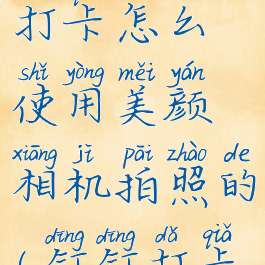 打卡怎么
shǐ yòng měi yán
使用美颜
xiāng jī pāi zhào de
相机拍照的
dīng dīng dǎ qiǎ
(钉钉打卡